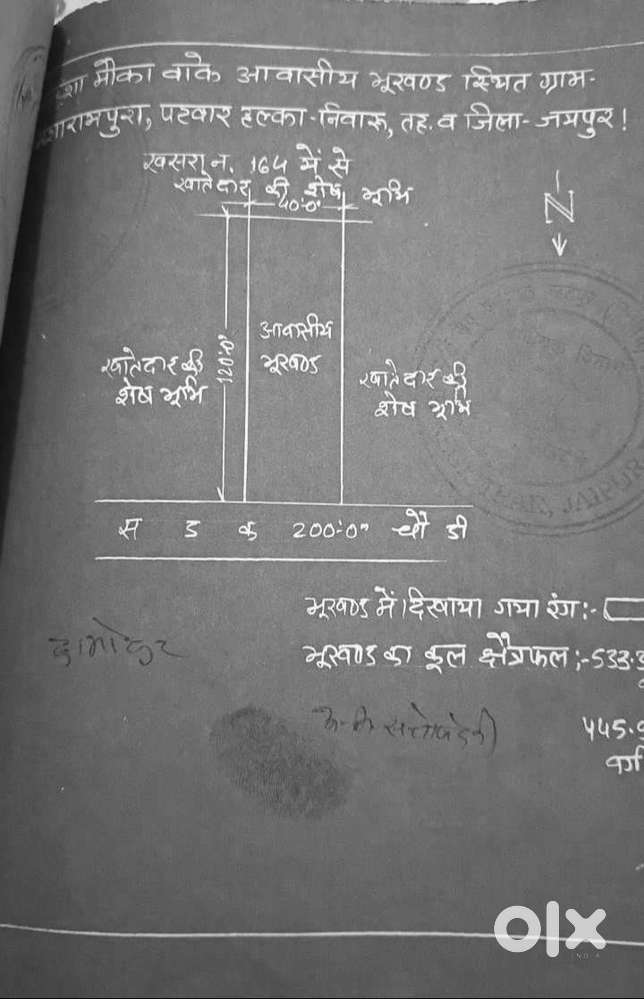 शा मौका वाके आवासीय भूखण्ड स्थित ग्राम-
शारामपुरा, पटवार हल्का-निवारू, तह. व जिला-जयपुर!
खसरा न. 164 में से
खातेदार की शेष भूमि
40'0"
N
120'0"
आवासीय
भूखण्ड
खातेदार की
शेष भूमि
खातेदार की
शेष भूमि
स ड क 200'0" चौ डी
भूखण्ड में दिखाया गया रंग:-
भूखण्ड का कुल क्षेत्रफल:-533.3
445.9
वर्ग
JAIPUR
olx
INDIA